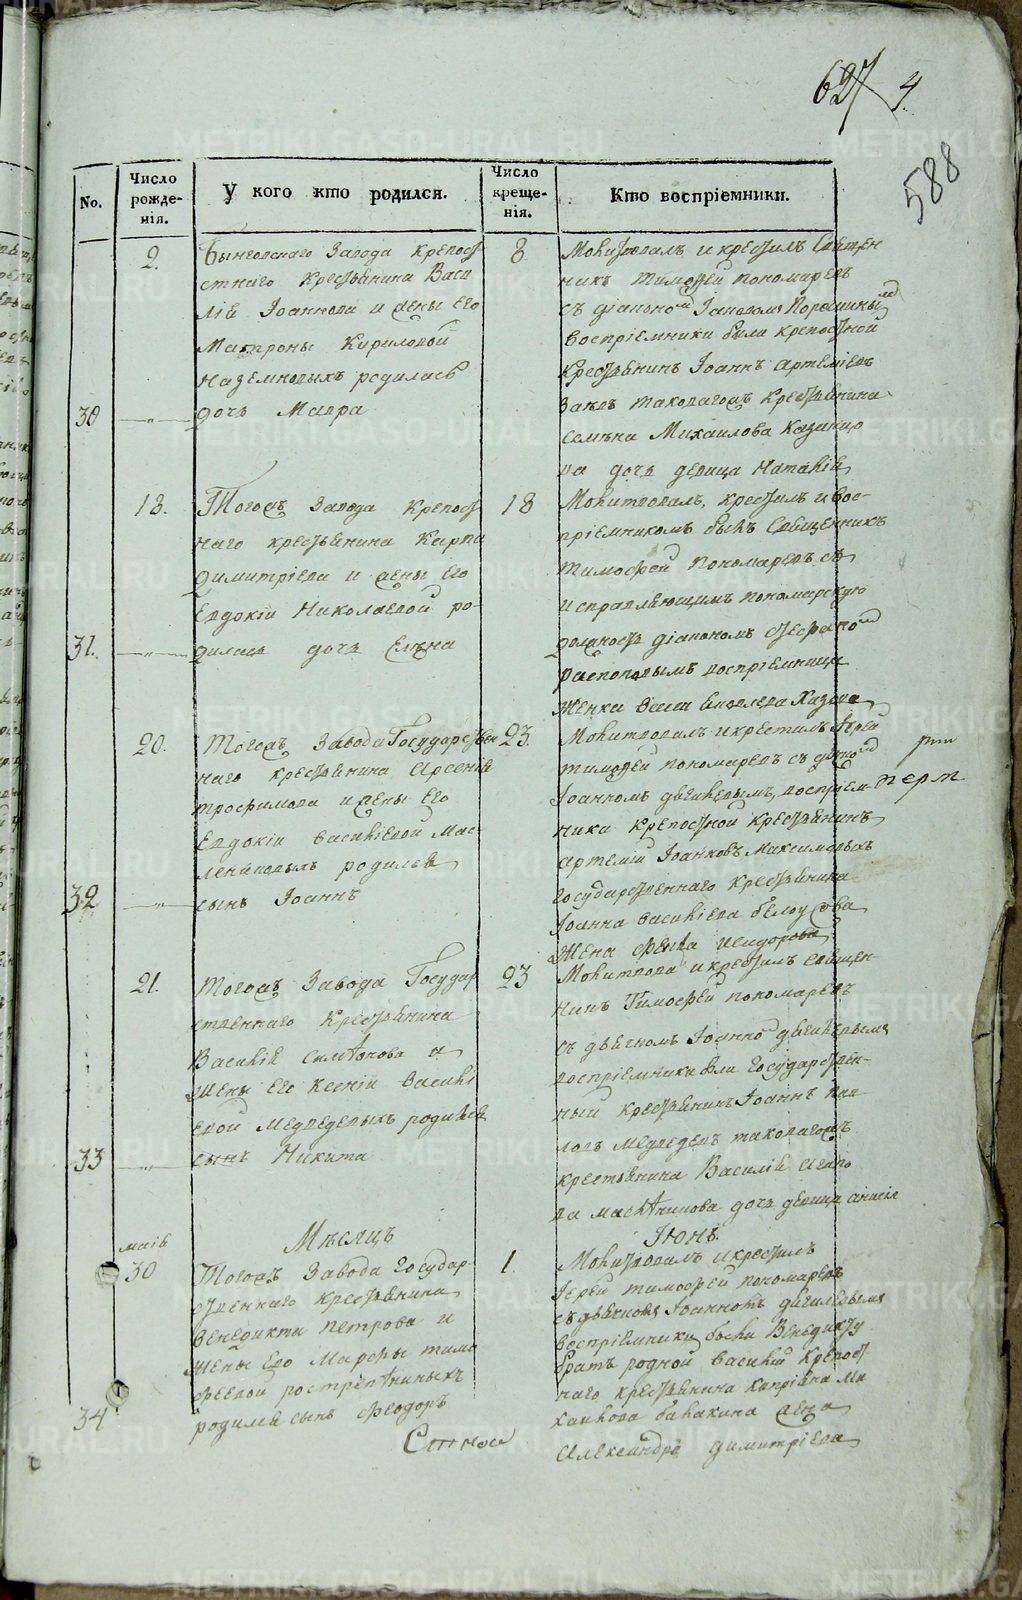 627 4
588
No.
Число рожде-нія.
У кого кто родился.
Число креще-нія.
Кто воспріемники.
2.
Бынговскаго Завода Крепост
стнаго Крестьянина Васи
лія Іоаннова и жены Его
Матроны Кириловой
Наземновыхъ родилась
30
дочь Мавра
8
Молитвовалъ и крестилъ Священ
никъ Тимофей Пономаревъ
съ діакономъ
воспріемники были крепостной
крестьянинъ Іоаннъ Артеміевъ
таковагожъ Крестьянина
Семена Михаилова Казанцо
ва дочь девица Наталія
13.
Тогожъ Завода Крепост
наго крестьянина Карпа
Димитріева и жены Его
Евдокіи Николаевой ро-
31.
дилась дочь Елена
18
Молитвовалъ, крестилъ и вос-
пріемникомъ былъ Священникъ
Тимофей Пономаревъ съ
исправляющимъ пономарскую
должность діакономъ Стефаномъ
распоповымъ воспріемница
Женка
20.
Тогожъ Завода Государствен
наго крестьянина Арсенія
Трофимова и жены Его
Евдокіи Василіевой Мас-
лениковыхъ родился
32
сынъ Іоаннъ
23.
Молитвовалъ и крестилъ Іерей
Тимофей Пономаревъ съ дьячкомъ
Іоанномъ дягилевымъ, воспріем-
ники крепостной Крестьянинъ
Артемій Іоанновъ Максимовыхъ
государственнаго крестьянина
Іоанна Василіева белоусова
Жена Фекла Исидорова
21.
Тогожъ Завода Государ
ственнаго Крестьянина
Василія Симеонова и
Жены Его Ксеніи Василі
евой Медведевыхъ родился
33
сынъ Никита
23
Молитвова и крестилъ священ-
никъ Тимофей Пономаревъ
съ дьячкомъ Іоанно дягилевымъ
воспріемники бли Государствен-
ный крестьянинъ Іоаннъ Пав-
ловъ Медведевъ таковагожъ
крестьянина Василія Агапо
ва масленикова дочь девица анисія
Мѣсяцъ Іюнь.
маія
30
Тогожъ Завода Государ-
ственнаго крестьянина
Венедикта Петрова и
Жены Его Марфы Тимо
феевой
34
родился сынъ Феодоръ
1
Молитвовалъ и крестилъ
Іерей Тимофей Пономаревъ
съ дьячкомъ Іоанномъ дягилевымъ
воспріемники были Венедикту
братъ родной Василій Крепост-
наго крестьянина Капріяна Ми
хаилова балакина жена
Александра Димитріева
METRIKI.GASO-URAL.RU